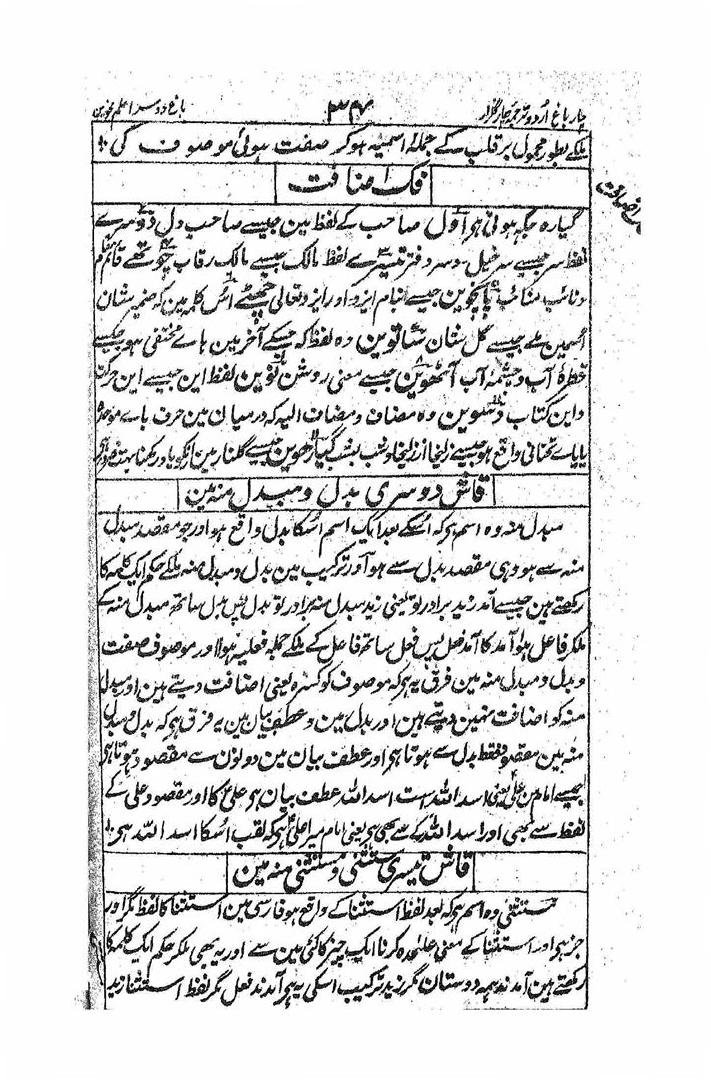 چار باغ اُردو ترجمہ چار گلزار
۳۴
باغ دوسرا علم نحو مین
ملکے بطور محمول بر قلب کے جملۂ اسمیہ ہوکر صفت ہوئی موصوف کی
فک اضافت
گیارہ جگہ ہوتی ہر اول صاحب کے لفظ مین جیسے صاحب دل دوسرے
لفظ سر جیسے سر خیل و سر دفتر تیسرے لفظ مالک جیسے مالک رقاب چوتھے قائم مقام
و نائب مناب پانچوین جیسے بنام ایزد اور ایزد تعالی چھٹے اُس کلمہ مین کہ ضمیر شان
اُسمین ہے جیسے گل شان ساتوین وہ لفظ کہ جسکے آخر مین ہاے مختفی ہو جیسے
قطرۂ آب و چشمۂ آب آٹھوین جیسے معنی روشن نوین لفظ این جیسے این حرکت
و این کتاب دسوین وہ مضاف و مضاف الیہ کہ درمیان مین حرف باے موحدہ
یا یاے تحتانی واقع ہو جیسے زلیخا از زلیخا و شب بشب گیارھوین جیسے گلنار مین انکو یاد رکھنا بہت ضرور ہی
قاش دوسری بدل و مبدل منہ مین
مبدل منہ وہ اسم ہی کہ اُسکے بعد ایک اسم اُسکا بدل واقع ہو اور جو مقصد مبدل
منہ سے ہو وہی مقصد بدل سے ہو اور ترکیب مین بدل و مبدل منہ ملکے حکم ایک کلمہ کا
رکھتے ہین جیسے آمد زید برادر تو یعنی زید مبدل منہ برادر تو بدل پس بدل ساتھ مبدل منہ کے
ملکر فاعل ہوا آمد کا آمد فعل پس فعل ساتھ فاعل کے ملکے جملہ فعلیہ ہوا اور موصوف صفت
و بدل و مبدل منہ مین فرق یہ ہی کہ موصوف کو کسرہ یعنی اضافت دیتے ہین اور مبدل
منہ کو اضافت نہین دیتے ہین اور بدل مین و عطف بیان مین یہ فرق ہی کہ بدل و مبدل
منہ مین مقصود فقط بدل سے ہوتا ہی اور عطف بیان مین دونون سے مقصود ہوتا ہی
جیسے امام من علی یعنی اسد اللہ است اسد اللہ عطف بیان ہی علی کا اور مقصود علی کے
لفظ سے بھی اور اسد اللہ کے سے بھی ہی یعنی امام میرا علی ہی کہ لقب اُسکا اسد اللہ ہی
قاش تیسری مستثنی و مستثنی منہ مین
مستثنی وہ اسم ہی کہ بعد لفظ استثنا کے واقع ہو فارسی مین استثنا کا لفظ مگر اور
جز ہی اور استثنا کے معنی علیحدہ کرنا ایک چیز کا کئی مین سے اور یہ بھی ملکر حکم ایک کلمہ کا
رکھتے ہین آمدند ہمہ دوستان مگر زید ترکیب اسکی یہ ہی آمدند فعل مگر لفظ استثنا زید